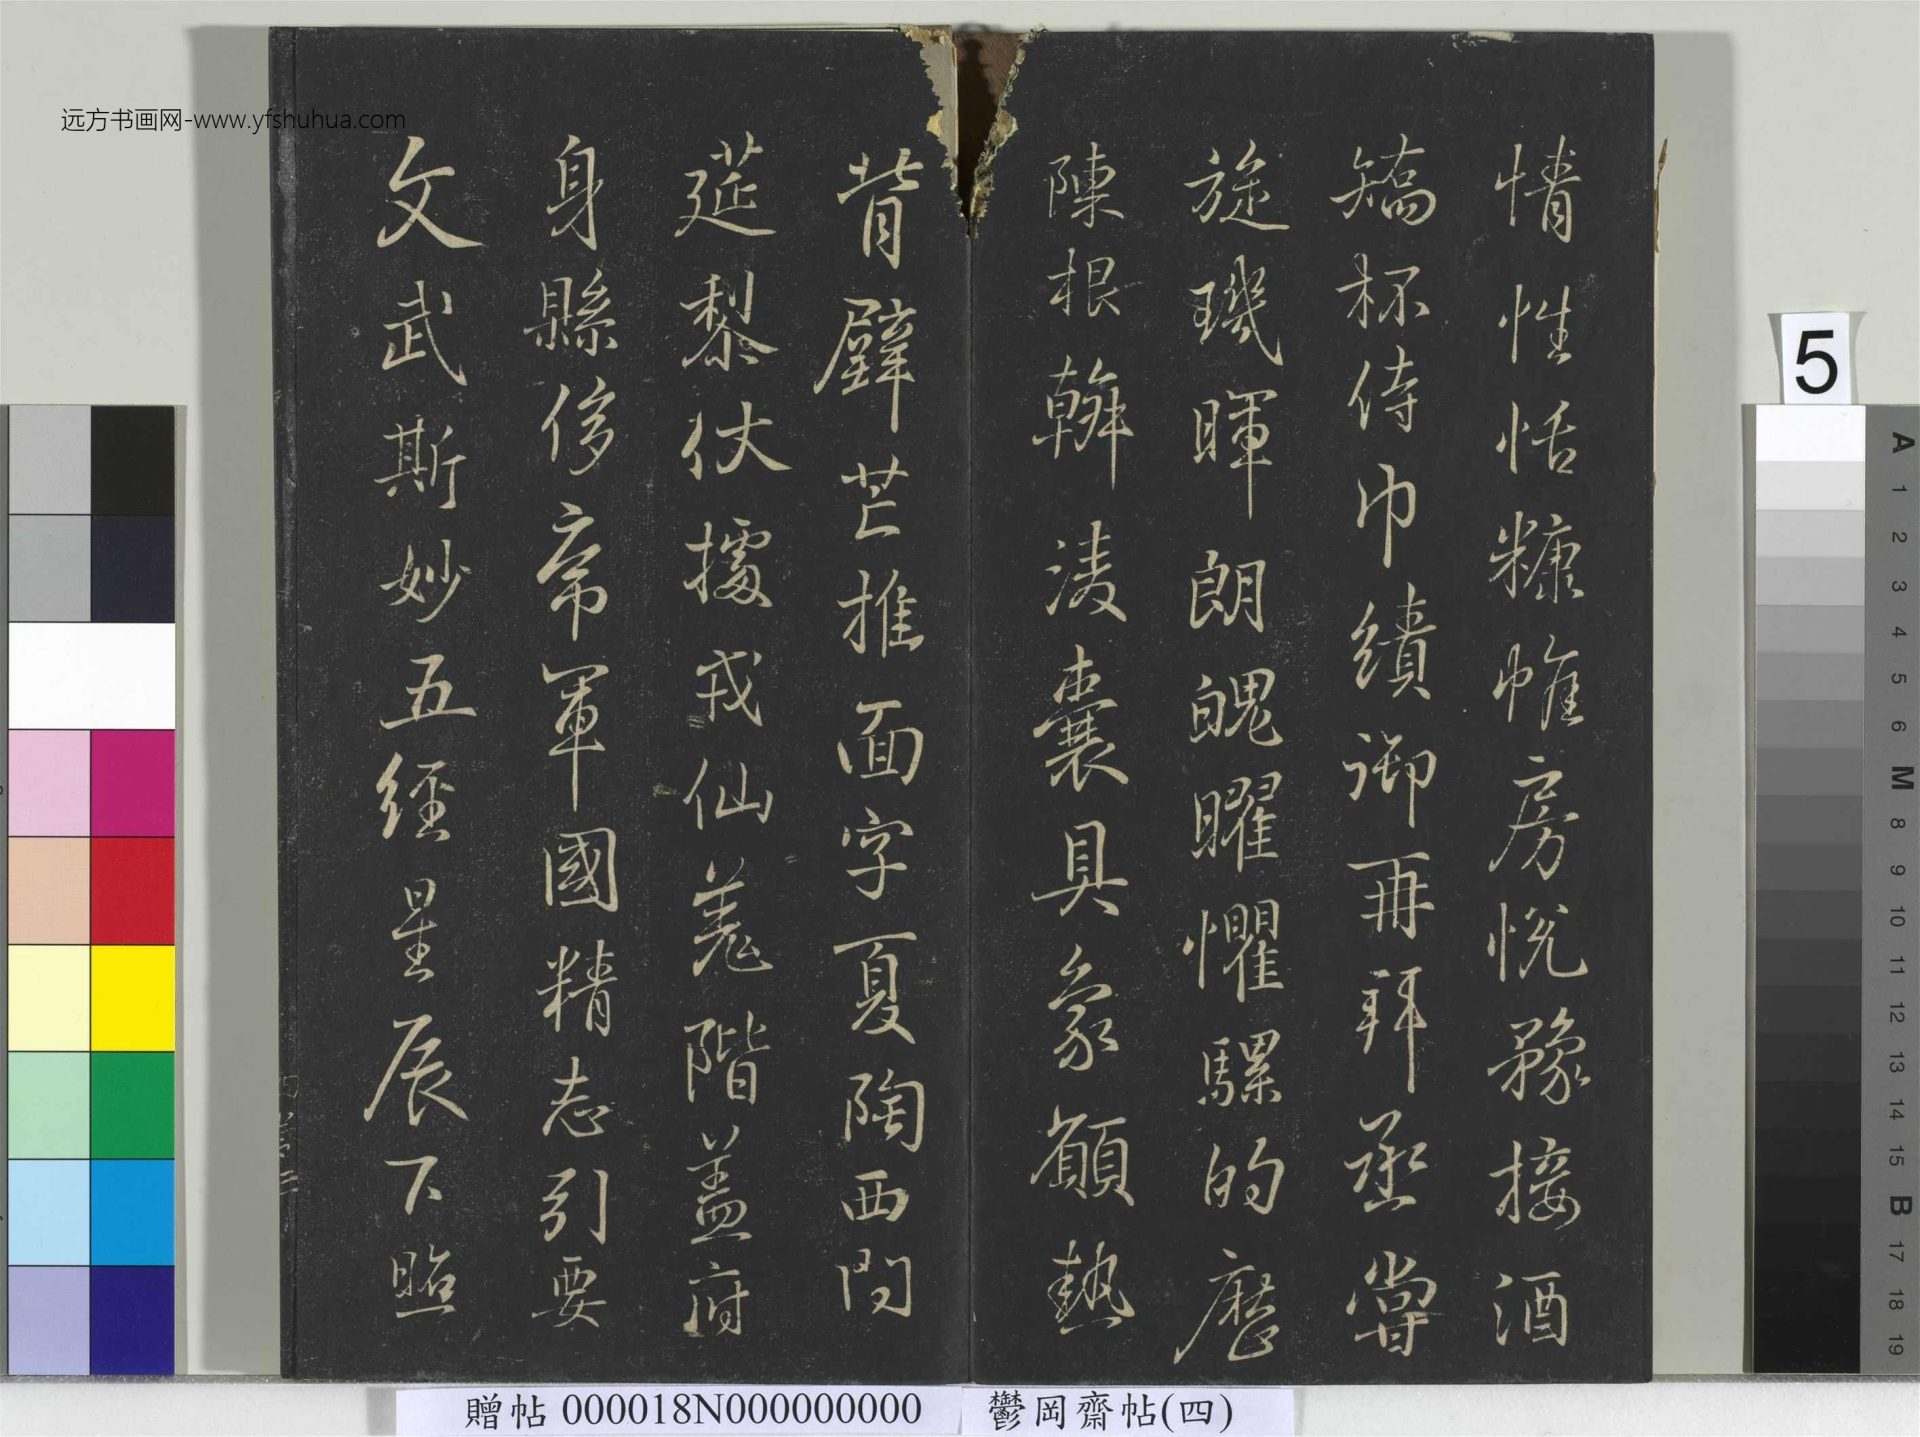 情性恬糠帷房悅豫接酒
矯杯侍巾績御再拜丞嘗
旋璣暉朗魄曜懼騾的歷
陳根幹凌囊具象顧熱
背璧芒推面字夏陶西問
莚黎伏據戎仙羌階蓋府
身縣侈帝軍國精志引要
文武斯妙五經星辰下照
远方书画网-www.yfshuhua.com
5
A 1 2 3 4 5 6 M 8 9 10 11 12 13 14 15 B 17 18 19
贈帖 000018N000000000 鬱岡齋帖(四)